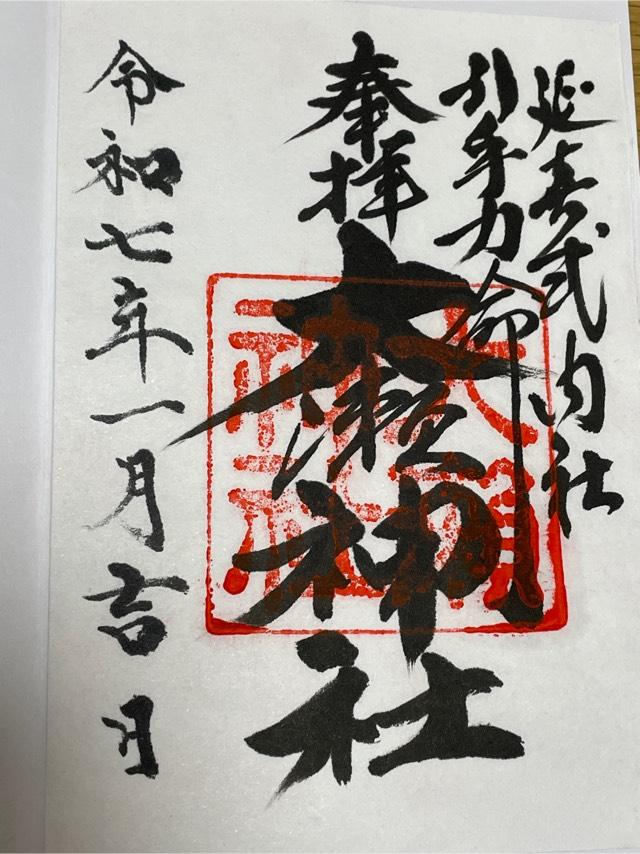 延喜式内社
引手力命
奉拝
大瀬神社
令和七年一月吉日